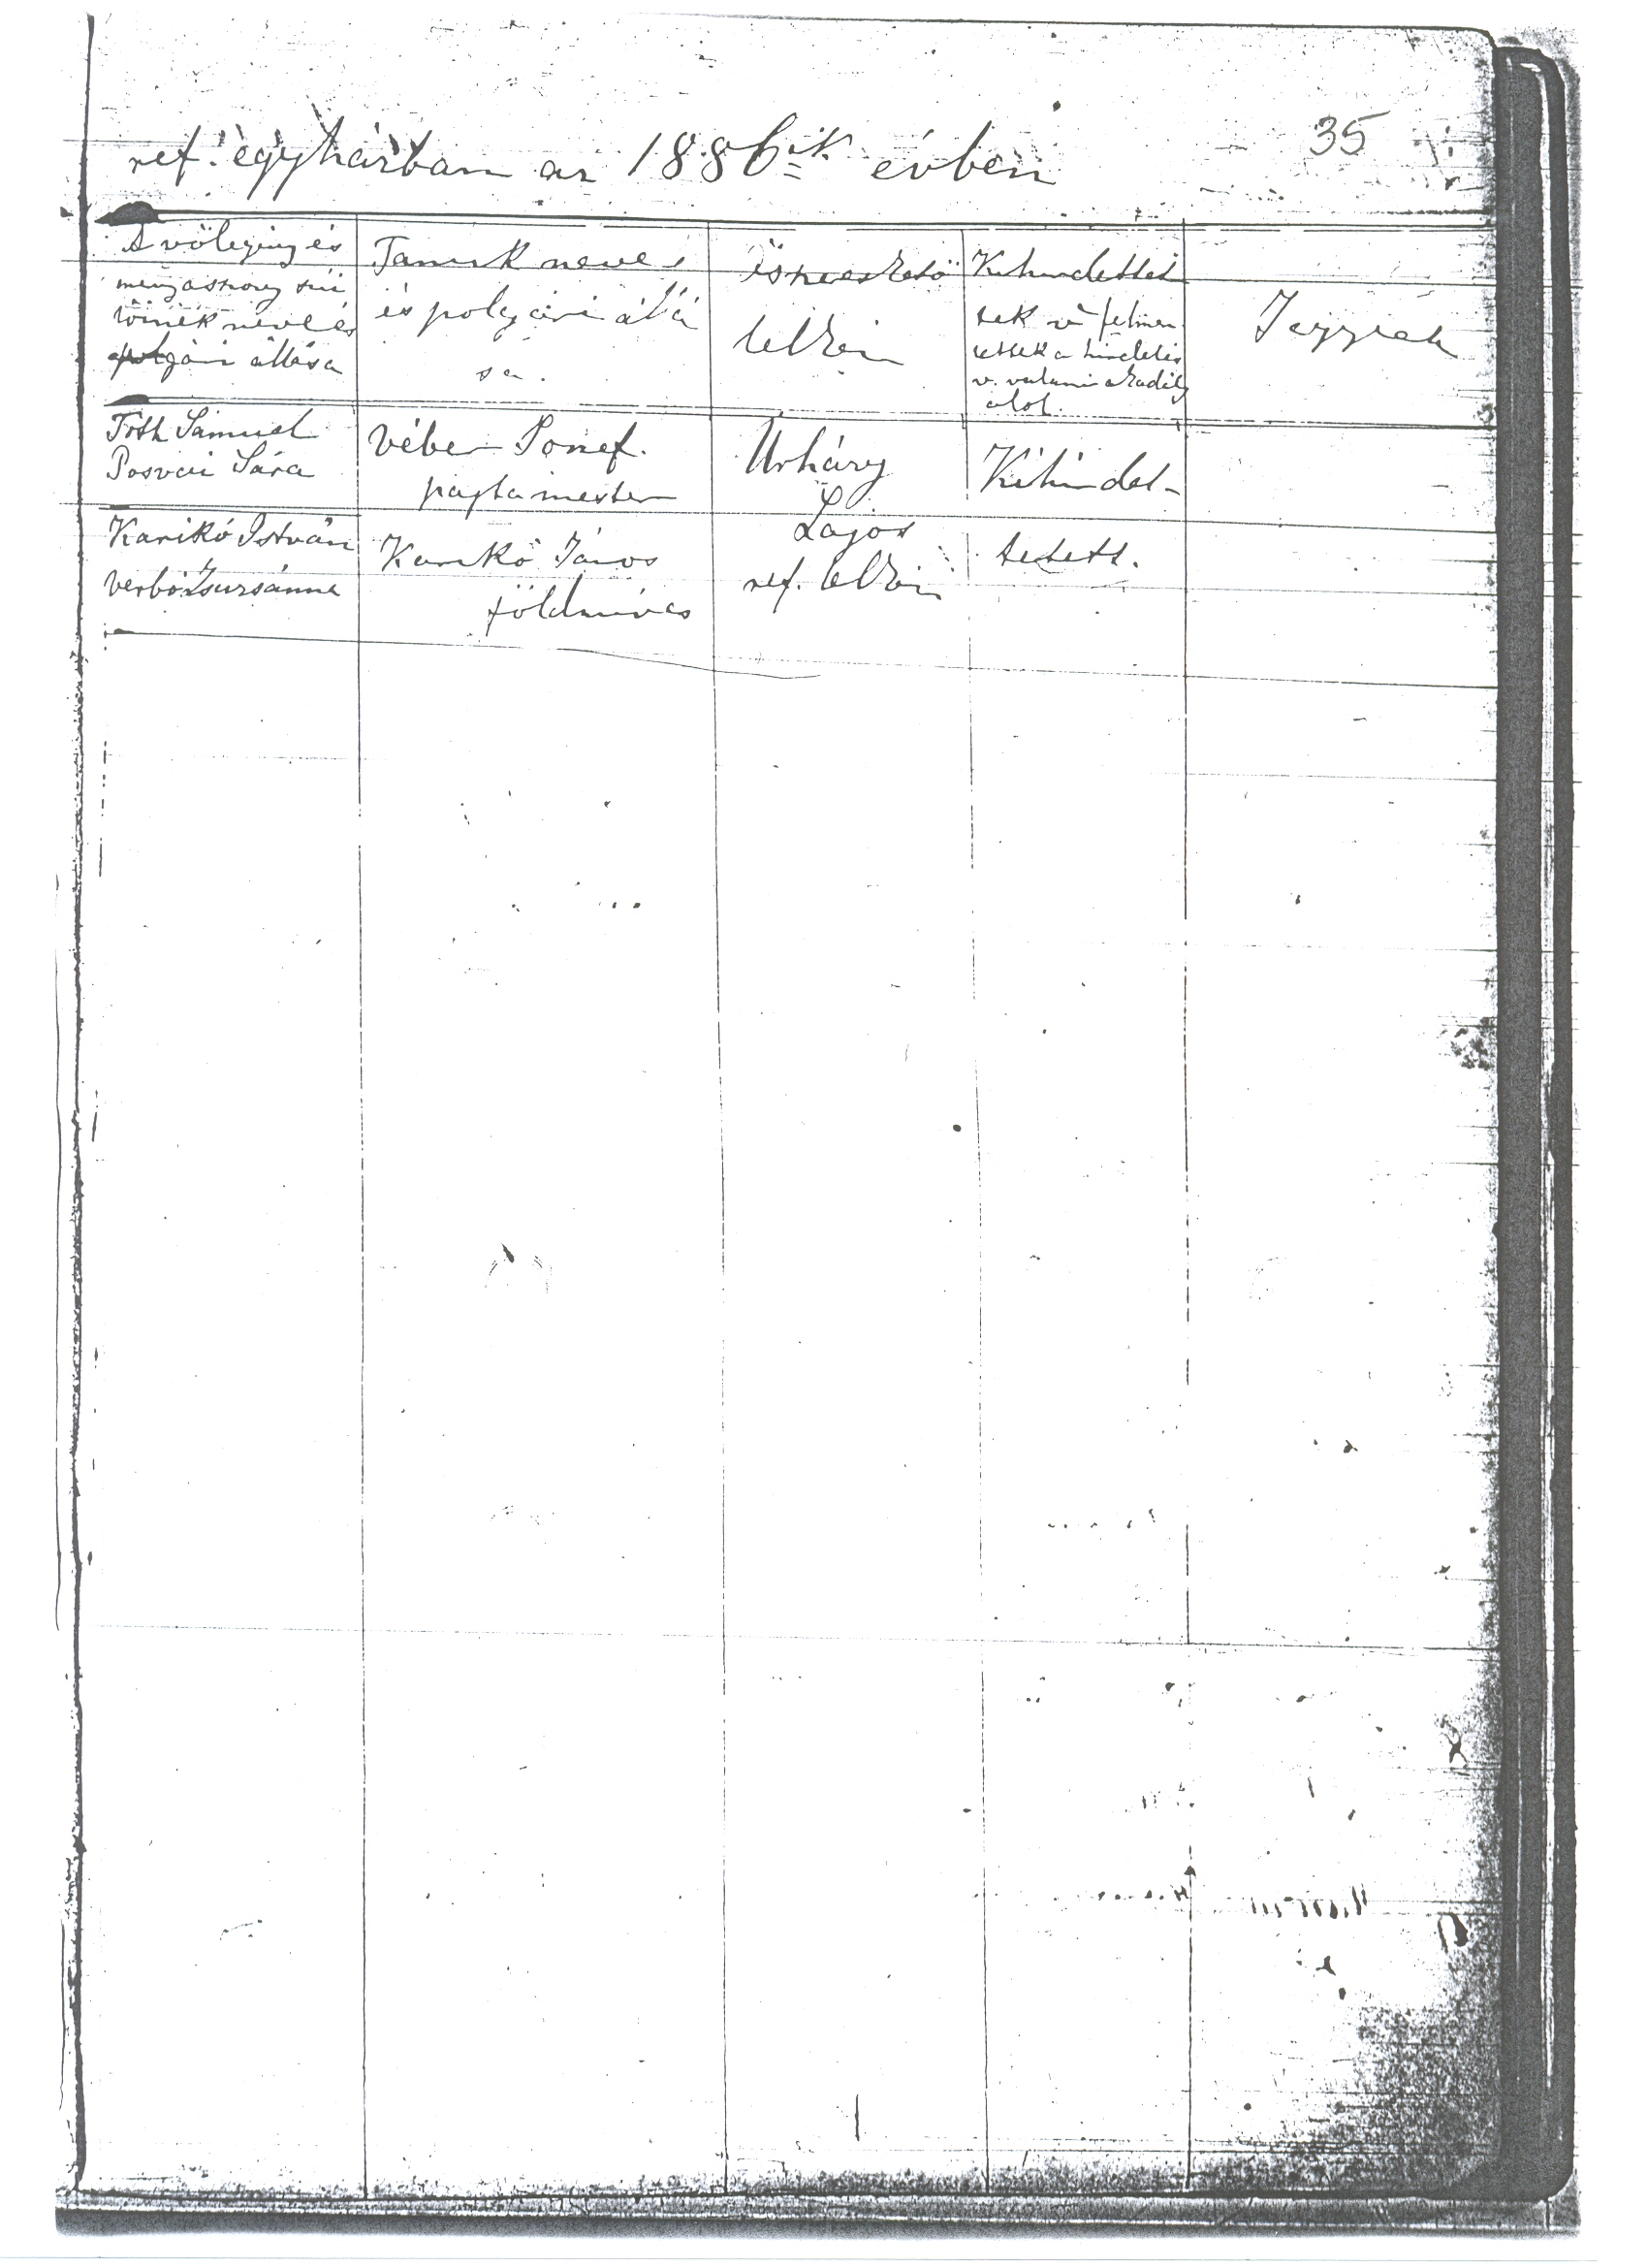 ref. egyházban az 1886ik évben
35
A vőlegény és
menyasszony szü
lőinek neve és
polgári állása
Tanuk neve
és polgári állá
sa.
összeesketö
lelkész
Kihirdettet
tek v felmen
tettek a hirdetés
v. valami akadály
alol.
Jegyzék
Tóth Sámuel
Posvai Sára
Véber Jozsef.
pajtamester
Urházy
Lajos
ref. lelkész
Kihirdet-
tetett.
Karikó István
Verbó Zsuzsánna
Karikó János
földmíves